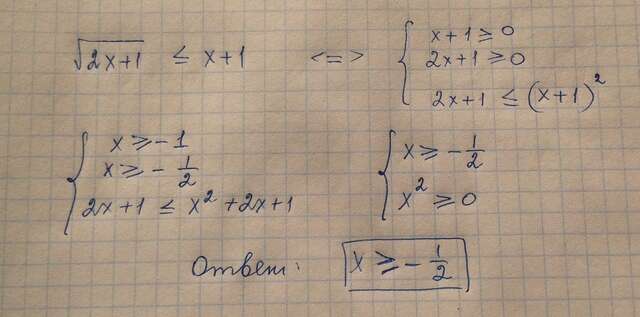 √(2x+1) ≤ x+1 <=> { x+1 ≥ 0
2x+1 ≥ 0
2x+1 ≤ (x+1)²
{ x ≥ -1
x ≥ - 1/2
2x+1 ≤ x² + 2x+1
{ x ≥ - 1/2
x² ≥ 0
Ответ: x ≥ - 1/2